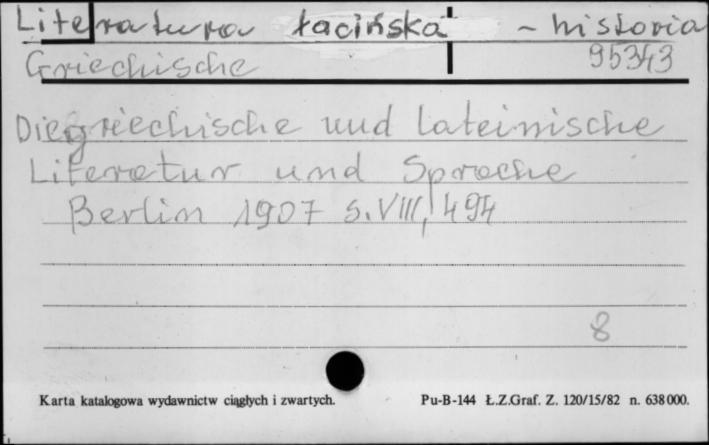 Literatura łacińska - historia
Griechische 95343
Die griechische und lateinische
Literatur und Sprache
Berlin 1907 S. VIII, 494
8
Karta katalogowa wydawnictw ciągłych i zwartych. Pu-B-144 Ł.Z.Graf. Z. 120/15/82 n. 638000.